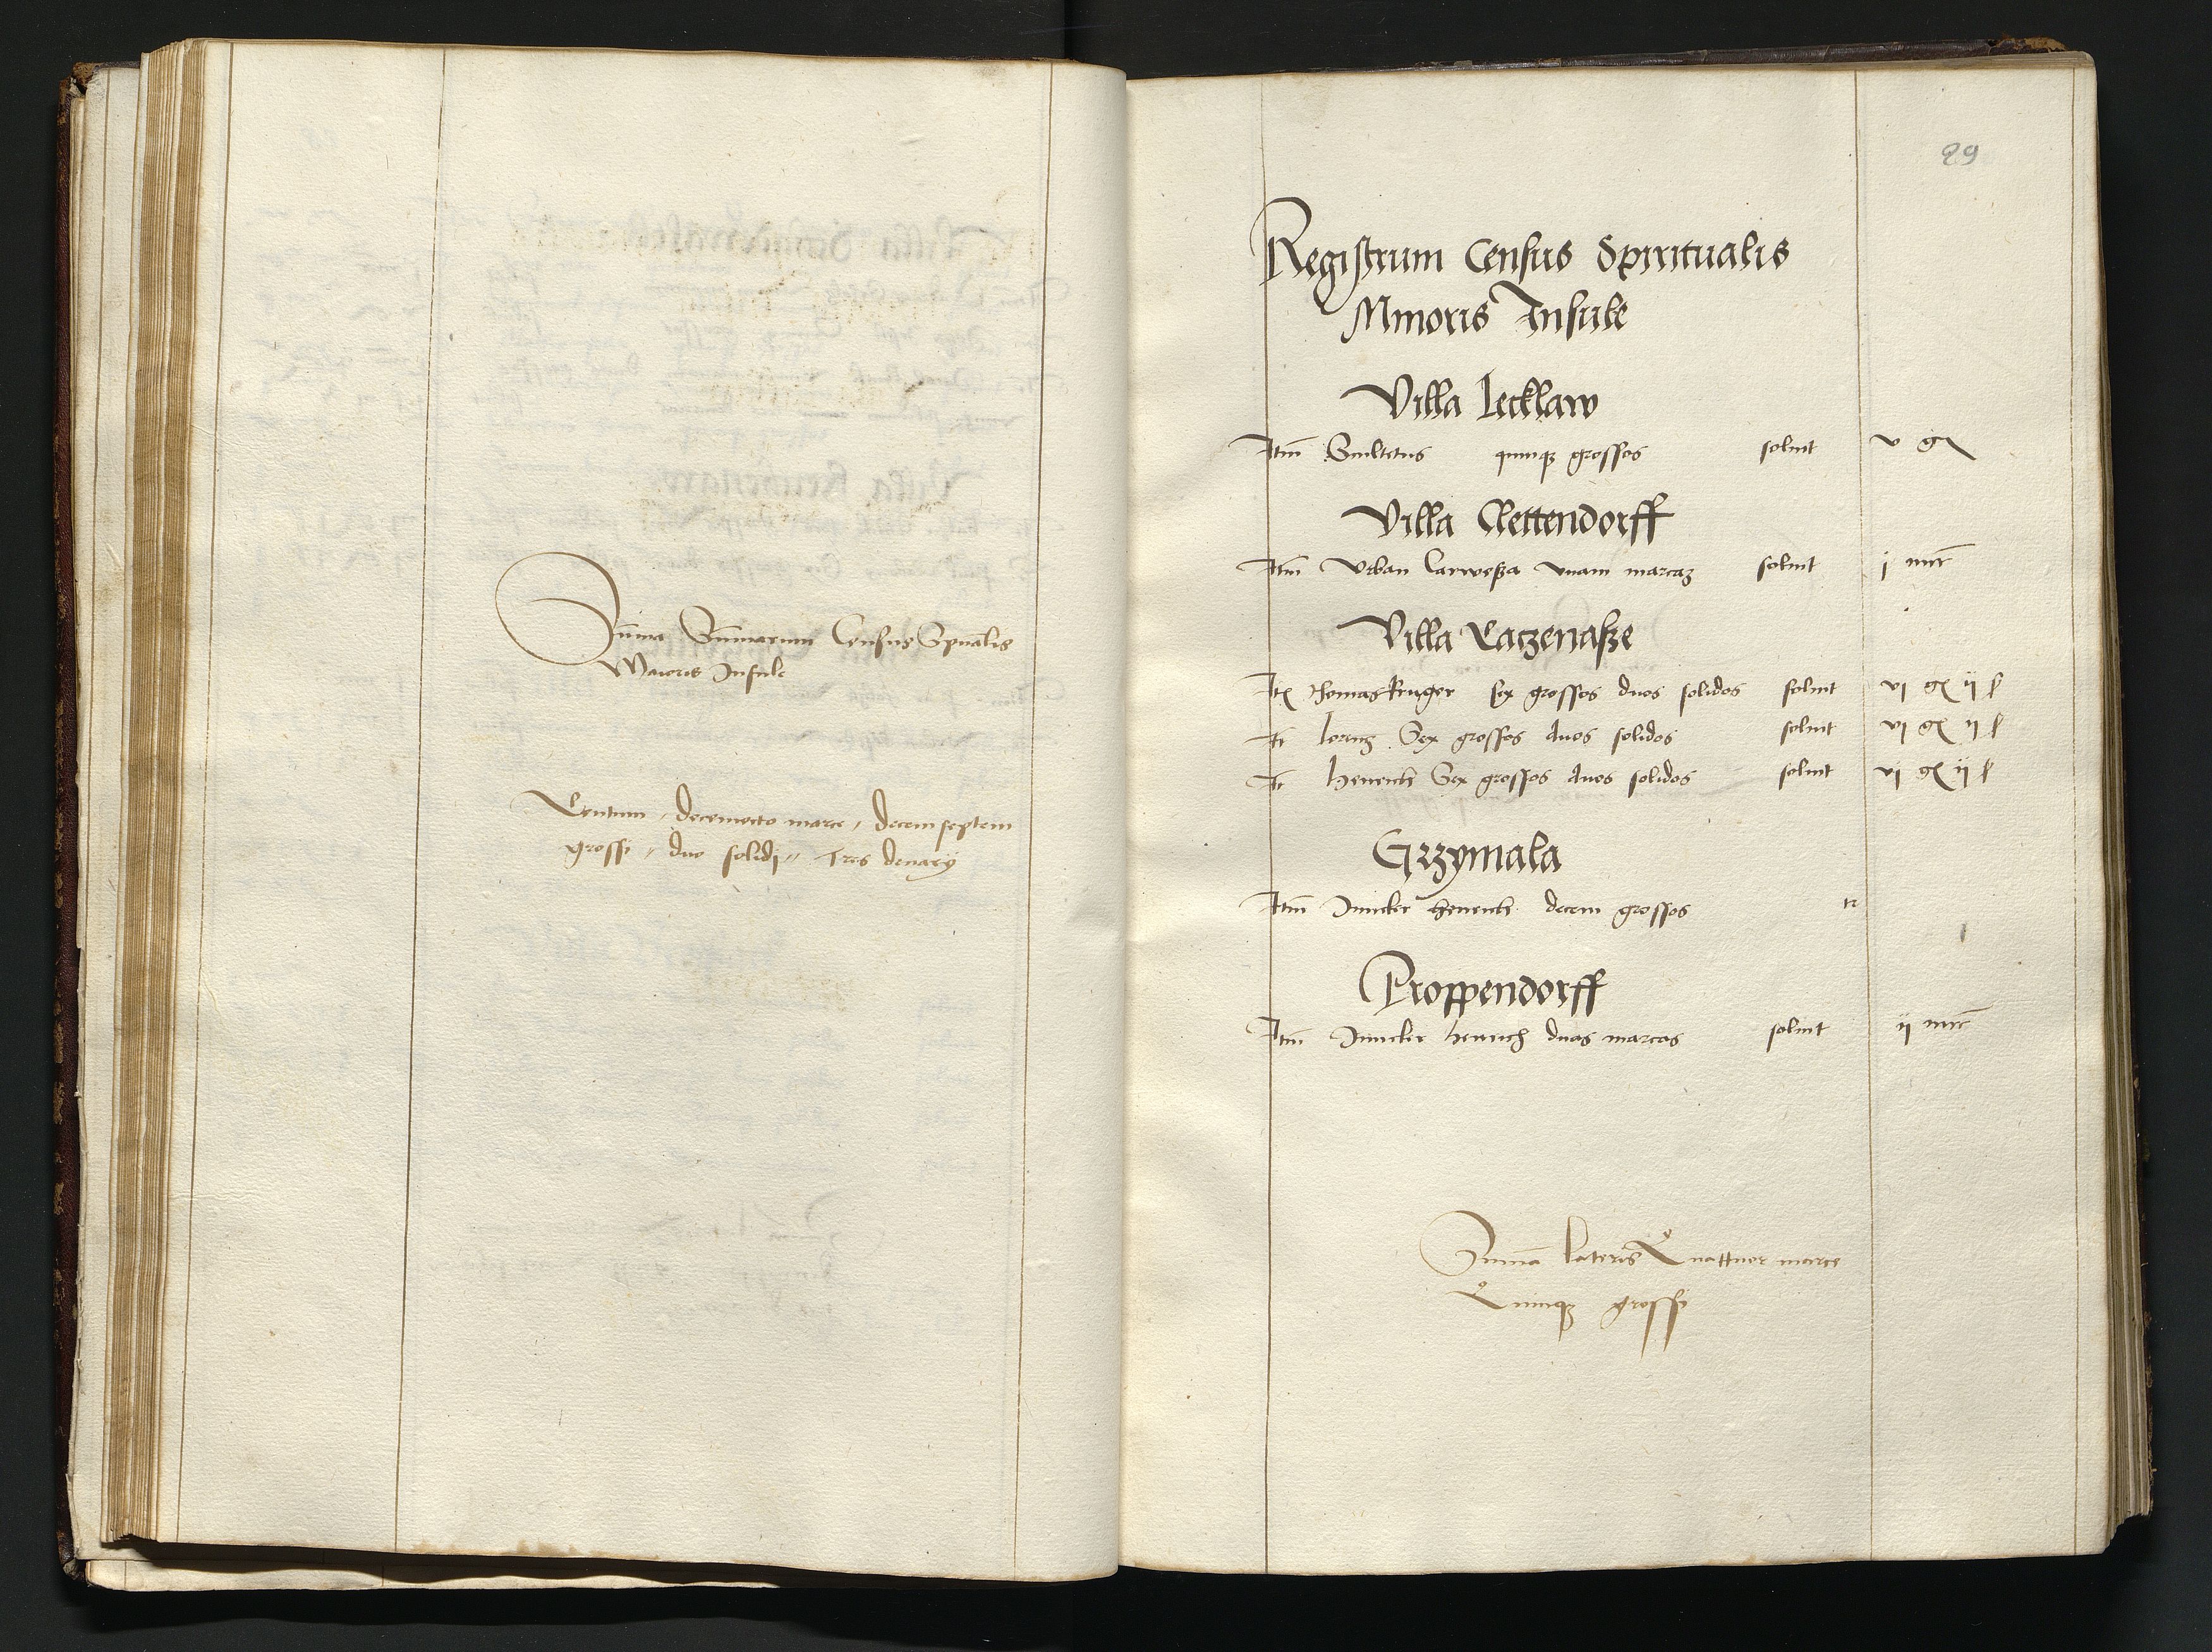 Suma Sumarum Census Spualis
Maioris Insule
Centum / decemocto marce / decemseptem
grossi // duo solidj // Tres denarij
29
Registrum Census Spiritualis
Minoris Insule
Villa Lecklaw
Itm Scultetus quinqz grossos soluit v gr
Villa Clettendorff
Itm Urban Carwesza vnam marcaz soluit j mrc
Villa Katzenasze
It Thomas kruger sex grossos duos solidos soluit vj gr ij s
It lorenz Sex grossos duos solidos soluit vj gr ij s
It henrich Sex grossos duos solidos soluit vj gr ij s
Grzymala
Itm Juncker henrich decem grossos tr
Proppendorff
Itm Juncker henrich duas marcas soluit ij mrc
Suma lateris Quattuor marce
Quinqz grossi